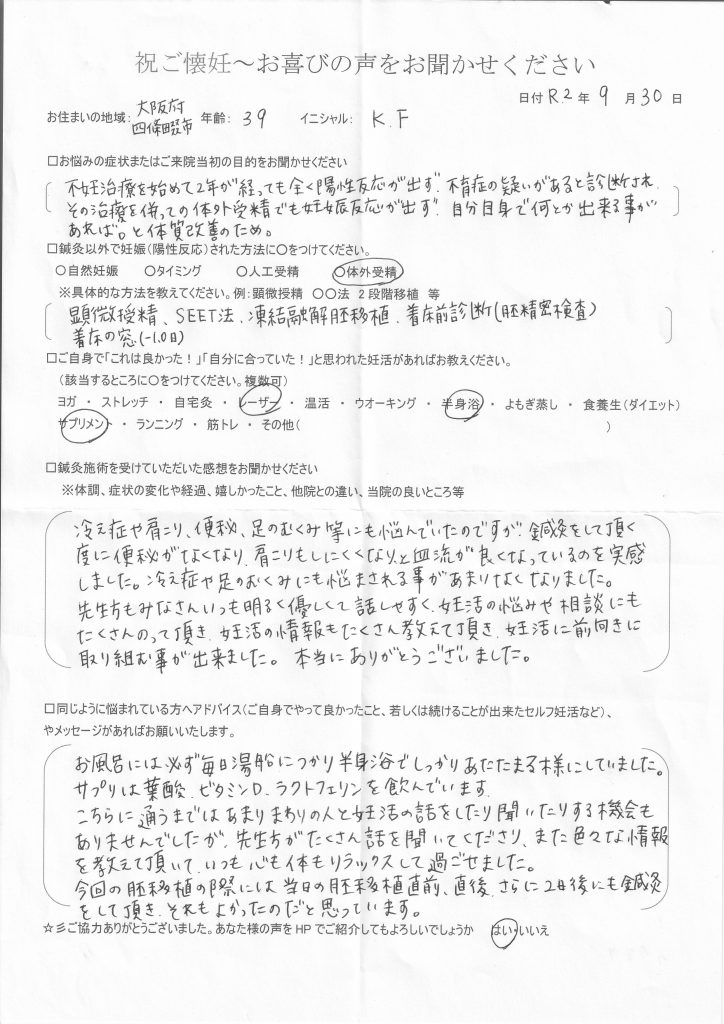 祝ご懐妊～お喜びの声をお聞かせください
日付 R.2 年 9 月 30 日
お住まいの地域: 大阪府四條畷市 年齢: 39 イニシャル: K.F
□お悩みの症状またはご来院当初の目的をお聞かせください
不妊治療を始めて2年が経っても全く陽性反応が出ず、不育症の疑いがあると診断され、
その治療を併っての体外受精でも妊娠反応が出ず、自分自身で何とか出来る事が
あれば。と体質改善のため。
□鍼灸以外で妊娠(陽性反応)された方法に○をつけてください。
○自然妊娠 ○タイミング ○人工受精 ○体外受精
※具体的な方法を教えてください。例：顕微授精 ○○法 2段階移植 等
顕微授精、SEET法、凍結融解胚移植、着床前診断(胚精密検査)
着床の窓(-1.0日)
□ご自身で「これは良かった！」「自分に合っていた！」と思われた妊活があればお教えください。
(該当するところに○をつけてください。複数可)
ヨガ ・ ストレッチ ・ 自宅灸 ・ レーザー ・ 温活 ・ ウオーキング ・ 半身浴 ・ よもぎ蒸し ・ 食養生(ダイエット)
サプリメント ・ ランニング ・ 筋トレ ・ その他( )
□鍼灸施術を受けていただいた感想をお聞かせください
※体調、症状の変化や経過、嬉しかったこと、他院との違い、当院の良いところ等
冷え症や肩こり、便秘、足のむくみ等にも悩んでいたのですが、鍼灸をして頂く
度に便秘がなくなり、肩こりもしにくくなりと血流が良くなっているのを実感
しました。冷え症や足のむくみにも悩まされる事があまりなくなりました。
先生方もみなさんいつも明るく優しくて話しやすく、妊活の悩みや相談にも
たくさんのって頂き、妊活の情報もたくさん教えて頂き、妊活に前向きに
取り組む事が出来ました。本当にありがとうございました。
□同じように悩まれている方へアドバイス(ご自身でやって良かったこと、若しくは続けることが出来たセルフ妊活など)、
やメッセージがあればお願いいたします。
お風呂には必ず毎日湯船につかり半身浴でしっかりあたたまる様にしていました。
サプリは葉酸、ビタミンD、ラクトフェリンを飲んでいます。
こちらに通うまではあまりまわりの人と妊活の話をしたり聞いたりする機会も
ありませんでしたが、先生方がたくさん話を聞いてくださり、また色々な情報
を教えて頂いて、いつも心も体もリラックスして過ごせました。
今回の胚移植の際には当日の胚移植直前、直後、さらに2日後にも鍼灸
をして頂き、それもよかったのだと思っています。
☆彡ご協力ありがとうございました。あなた様の声をHPでご紹介してもよろしいでしょうか はい・いいえ